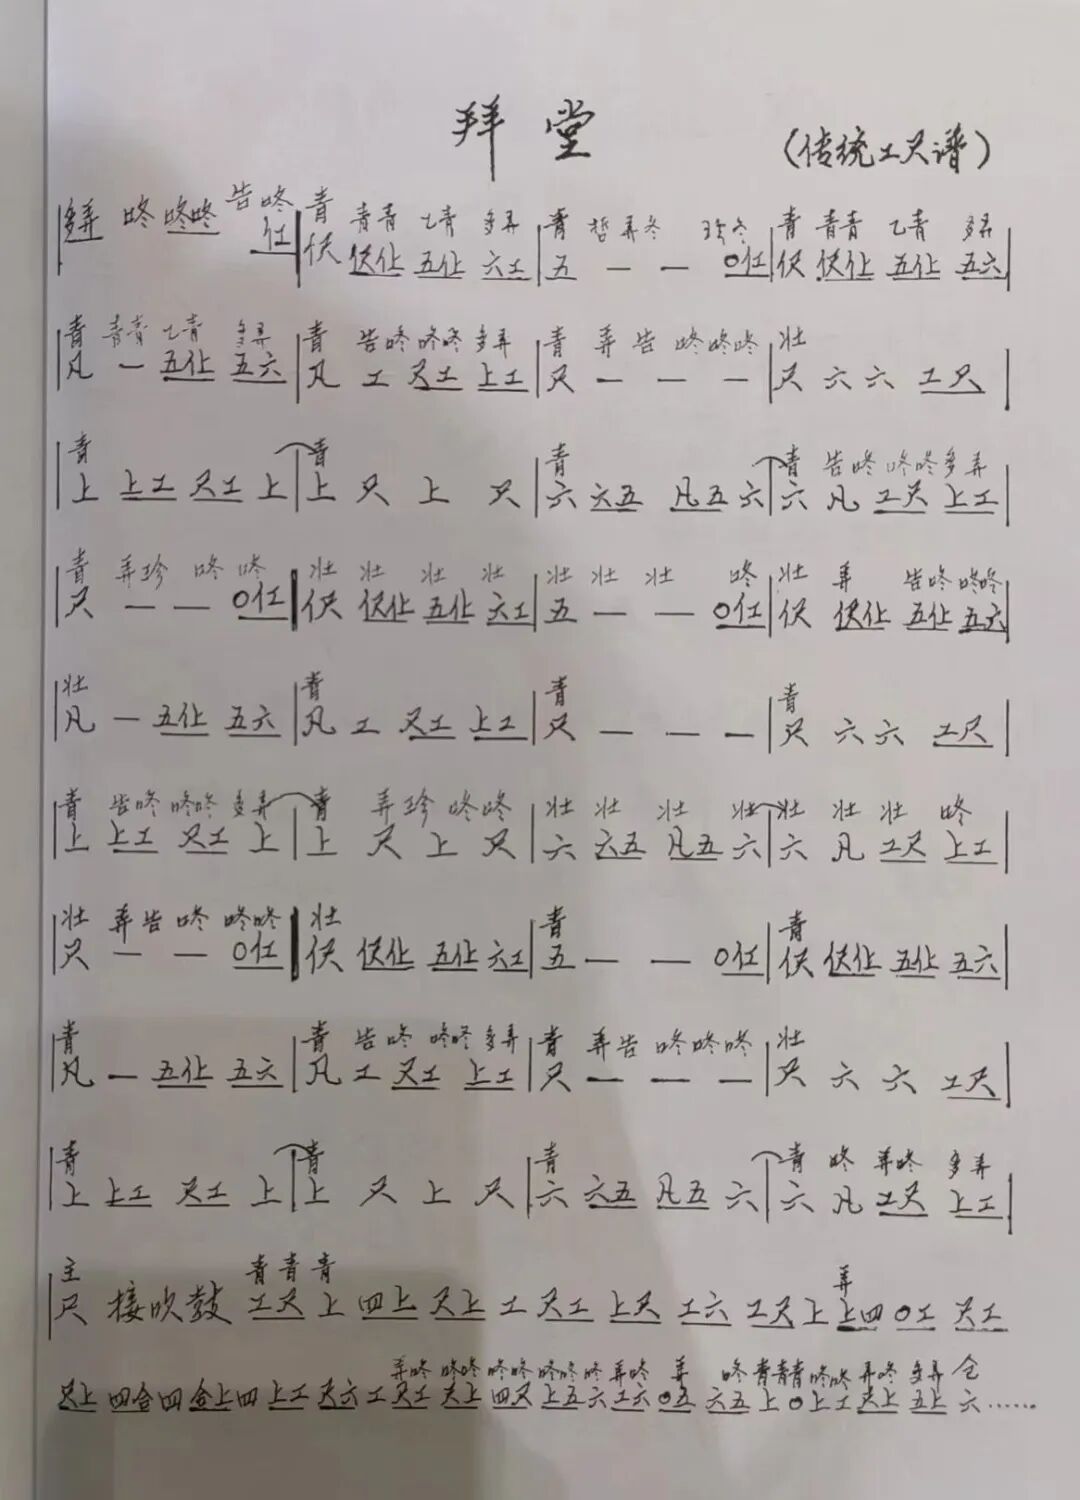 拜堂
(传统工尺谱)
多弄 咚 咚咚 告咚 青 青青 乙青 多弄 青 哲弄冬 珍冬 青 青青 乙青 多弄
仜 伬 伬仩 五仩 六工 五 — — 0仜 伬 伬仩 五仩 五六
青 青青 乙青 多弄 青 告咚咚咚多弄 青 弄告 咚咚咚 壮
凡 — 五仩 五六 凡 工 尺工 上工 尺 — — — 尺 六 六 工尺
青 青 青 青 告咚咚咚多弄
上 上工 尺工 上 上 尺 上 尺 六 六五 凡五 六 六 凡 工尺 上工
青 弄珍 咚 咚 壮 壮 壮 壮 壮 壮 壮 咚 壮 弄 告咚咚咚
尺 — — 0仜 伬 伬仩 五仩 六工 五 — — 0仜 伬 伬仩 五仩 五六
壮 青 青 青
凡 — 五仩 五六 凡 工 尺工 上工 尺 — — — 尺 六 六 工尺
青 告咚 咚咚 多弄 青 弄珍 咚咚 壮 壮 壮 壮 壮 壮 壮 咚
上 上工 尺工 上 上 尺 上 尺 六 六五 凡五 六 六 凡 工尺 上工
壮 弄告 咚 咚咚 壮 青 青
尺 — — 0仜 伬 伬仩 五仩 六工 五 — — 0仜 伬 伬仩 五仩 五六
青 青 告咚 咚咚 多弄 青 弄告 咚咚咚 壮
凡 — 五仩 五六 凡 工 尺工 上工 尺 — — — 尺 六 六 工尺
青 青 青 青 咚 弄咚 多弄
上 上工 尺工 上 上 尺 上 尺 六 六五 凡五 六 六 凡 工尺 上工
主 青 青 青 弄
尺 接吹鼓 工尺 上 四上 尺上 工 尺工 上尺 工六 工尺 上 上四 0工 尺工
弄咚 咚咚 咚咚 咚咚 咚弄咚 弄 咚青青青咚咚 弄咚 多弄 仓
尺上 四合四 合上四 上工 尺六工 尺工 尺上 四尺 上五六工六 0五 六五 上 0上工 尺上 五上 六……